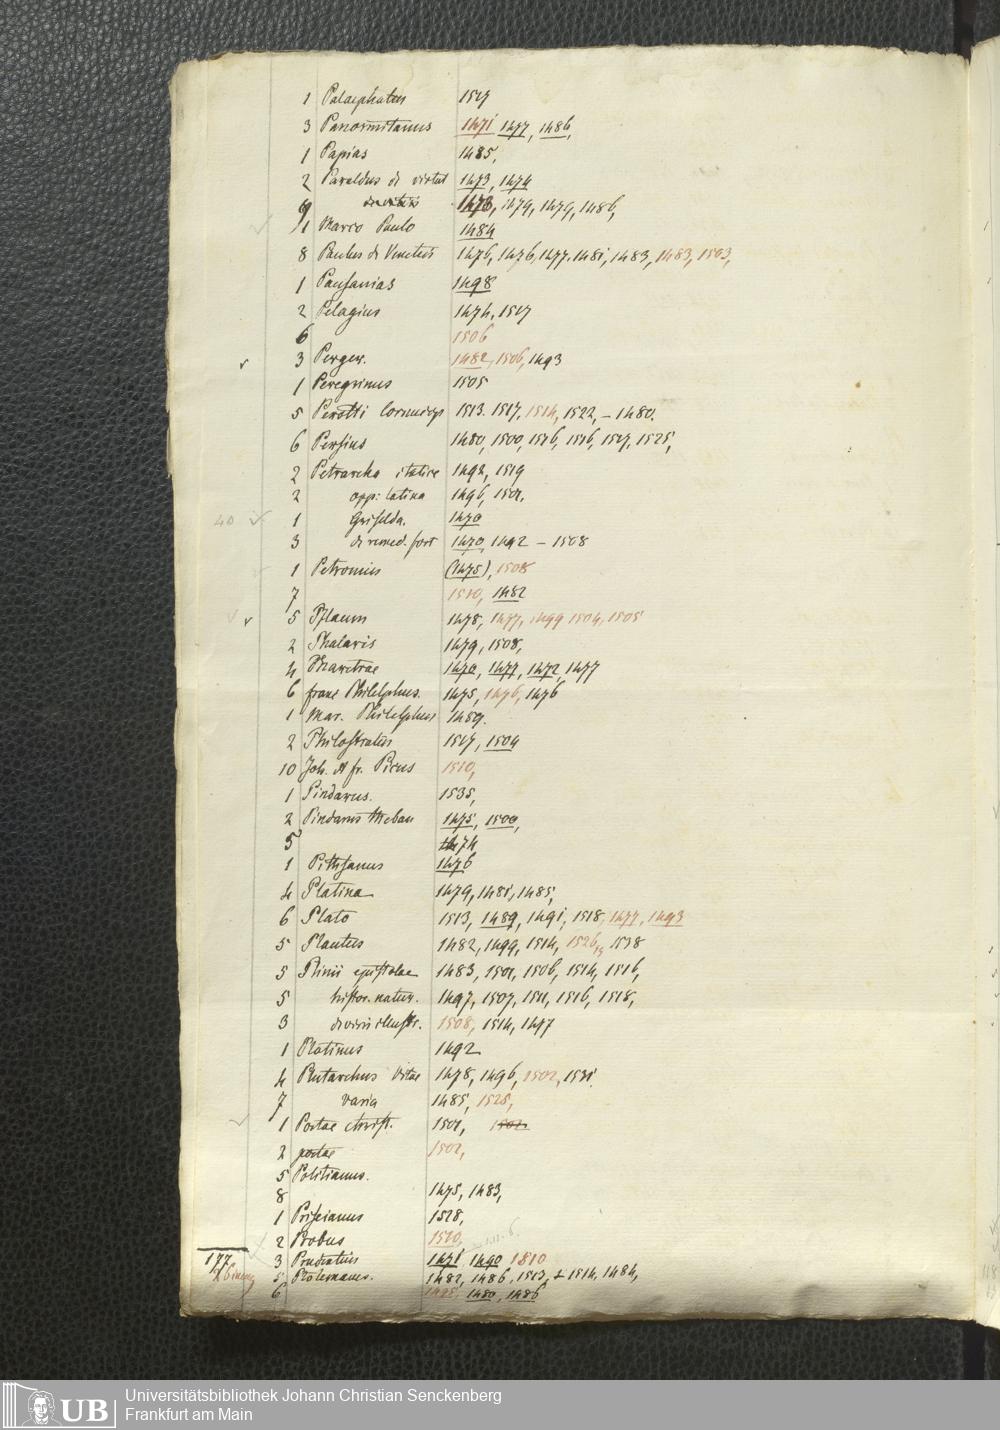 1 Palaephatus 1517
3 Panormitanus 1471 1477, 1486,
1 Papias 1485,
2 Paraldus de virtut 1473, 1474
9 de vitiis 1479, 1479, 1486,
1 Marco Paulo 1484
8 Paulus de Venetus 1476, 1476, 1477, 1481, 1483, 1483, 1503,
1 Pausanias 1498
2 Pelagius 1474, 1517
6 1506
3 Perger. 1482, 1506, 1493
1 Peregrinus 1505
5 Perotti Cornucop 1513. 1517, 1514, 1522, – 1480.
6 Persius 1480, 1500, 1516, 1516, 1517, 1525,
2 Petrarcha italice 1492, 1519
2 opp: latina 1496, 1501,
40 1 Griselda. 1470
3 de remed. fort 1470, 1492 – 1508
1 Petronius (1475), 1508
7 1510, 1482
5 Pflaum 1478, 1477, 1499 1504, 1505
2 Phalaris 1479, 1508,
4 Pharetrae 1470, 1477, 1472, 1477
6 franc Philelphus. 1475, 1476, 1476
1 Mar. Philelphus 1489.
2 Philostratus 1517, 1504
10 Joh. et fr. Picus 1510,
1 Pindarus. 1535,
2 Pindarus theban 1475, 1500,
5 1474
1 1476
4 Platina 1479, 1481, 1485,
6 Plato 1513, 1489, 1491, 1518, 1477, 1493
5 Plautus 1482, 1499, 1514, 1526, 1538
5 Plinii epistolae 1483, 1501, 1506, 1514, 1516,
5 histor. natur. 1497, 1507, 1511, 1516, 1518,
3 de viris illustr. 1508, 1514, 1477
1 Plotinus 1492
4 Plutarchus vitae 1478, 1496, 1502, 1531
7 varia 1485, 1525,
1 Poetae christ. 1501, 1502
2 poetae 1502,
5 Politianus.
8 1475, 1483,
1 Priscianus 1528,
2 Probus 1510,
177 3 Prudentius 1471, 1490 1810
5 Ptolemaeus. 1482, 1486, 1513, & 1514, 1484,
6 1495, 1480, 1486
Universitätsbibliothek Johann Christian Senckenberg
Frankfurt am Main
UB